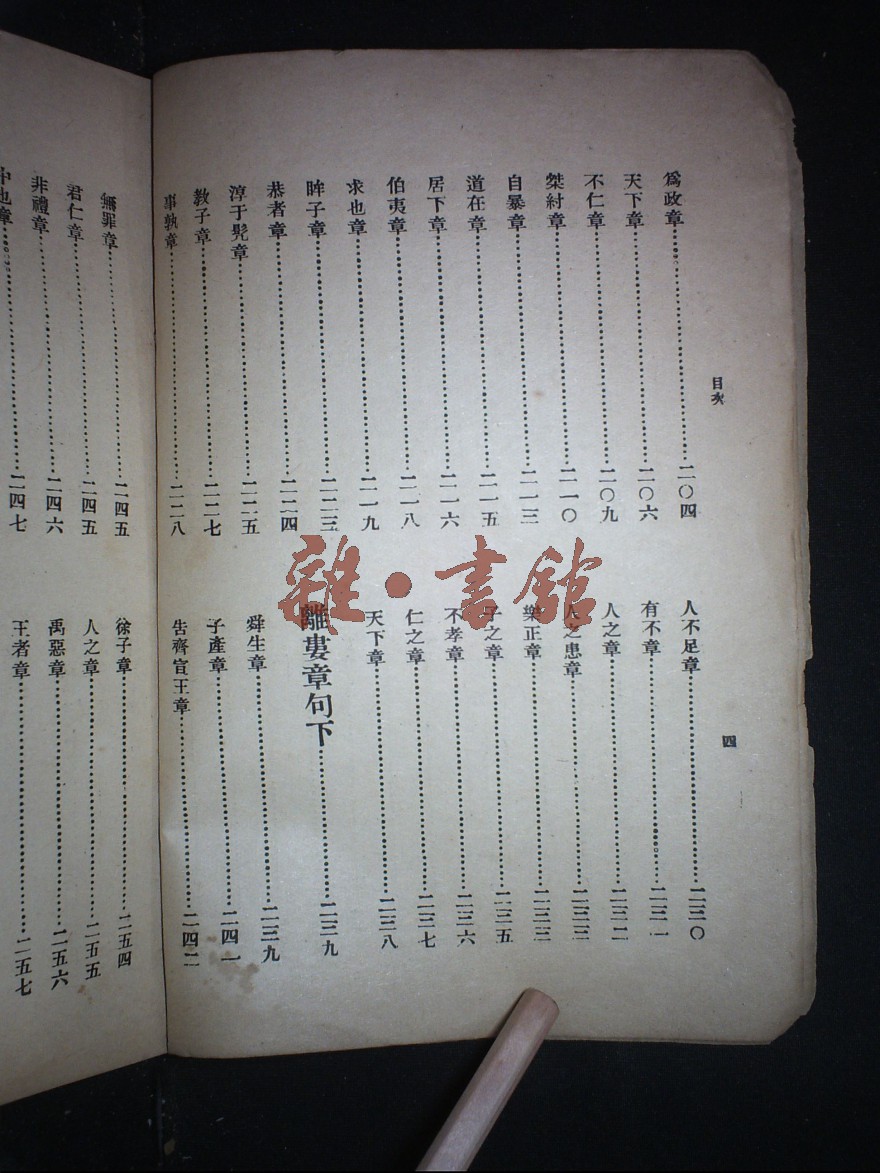 目次
四
爲政章……二〇四
天下章……二〇六
不仁章……二〇九
桀紂章……二一〇
自暴章……二一三
道在章……二一五
居下章……二一六
伯夷章……二一八
求也章……二一九
眸子章……二二三
恭者章……二二四
淳于髡章……二二五
教子章……二二七
事孰章……二二八
人不足章……二三〇
有不章……二三一
人之章……二三二
人之患章……二三三
樂正章……二三三
子之章……二三五
不孝章……二三六
仁之章……二三七
天下章……二三八
離婁章句下……二三九
舜生章……二三九
子產章……二四一
告齊宣王章……二四二
無罪章……二四五
君仁章……二四五
非禮章……二四六
中也章……二四七
徐子章……二五四
人之章……二五五
禹惡章……二五六
王者章……二五七
雜·書館